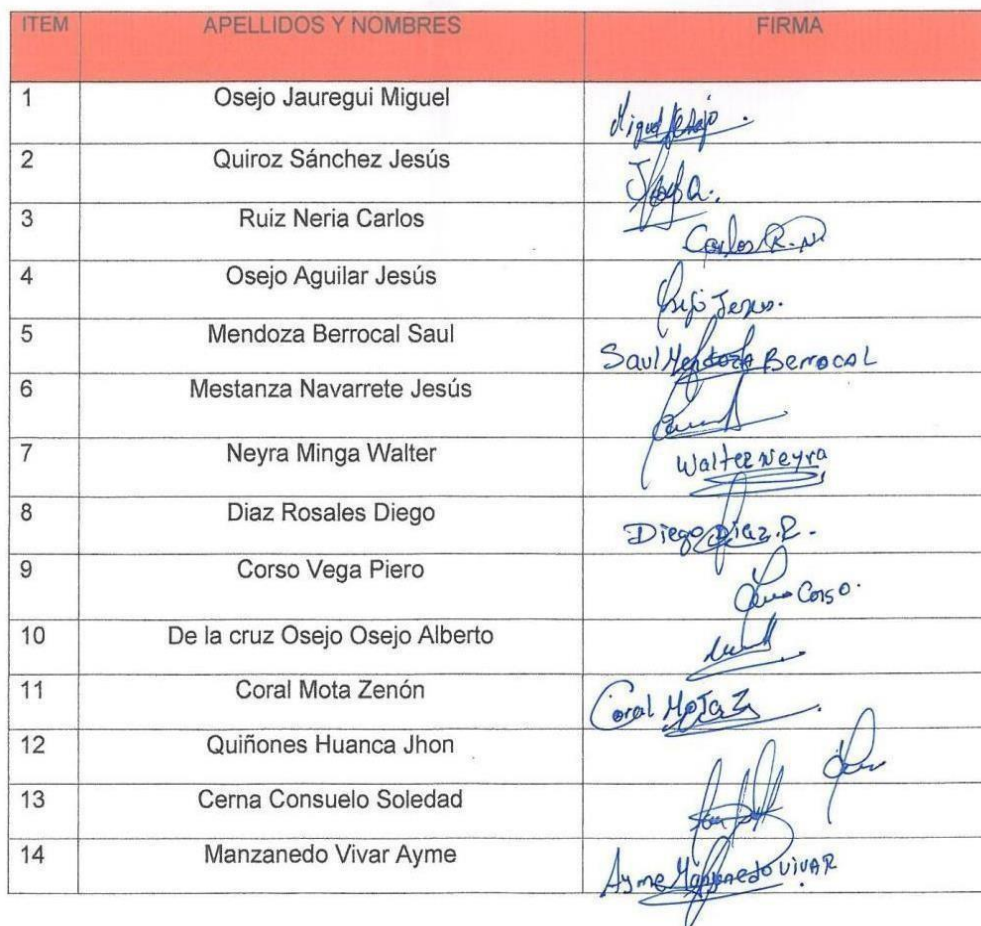 ITEM APELLIDOS Y NOMBRES FIRMA
1 Osejo Jauregui Miguel Miguel Osejo.
2 Quiroz Sánchez Jesús
3 Ruiz Neria Carlos Carlos R. N
4 Osejo Aguilar Jesús Osejo Jesus.
5 Mendoza Berrocal Saul Saul Mendoza Berrocal
6 Mestanza Navarrete Jesús
7 Neyra Minga Walter Walter Neyra
8 Diaz Rosales Diego Diego Diaz.R.
9 Corso Vega Piero Corso.
10 De la cruz Osejo Osejo Alberto
11 Coral Mota Zenón Coral Mota Z
12 Quiñones Huanca Jhon
13 Cerna Consuelo Soledad
14 Manzanedo Vivar Ayme Ayme Manzanedo VIVAR